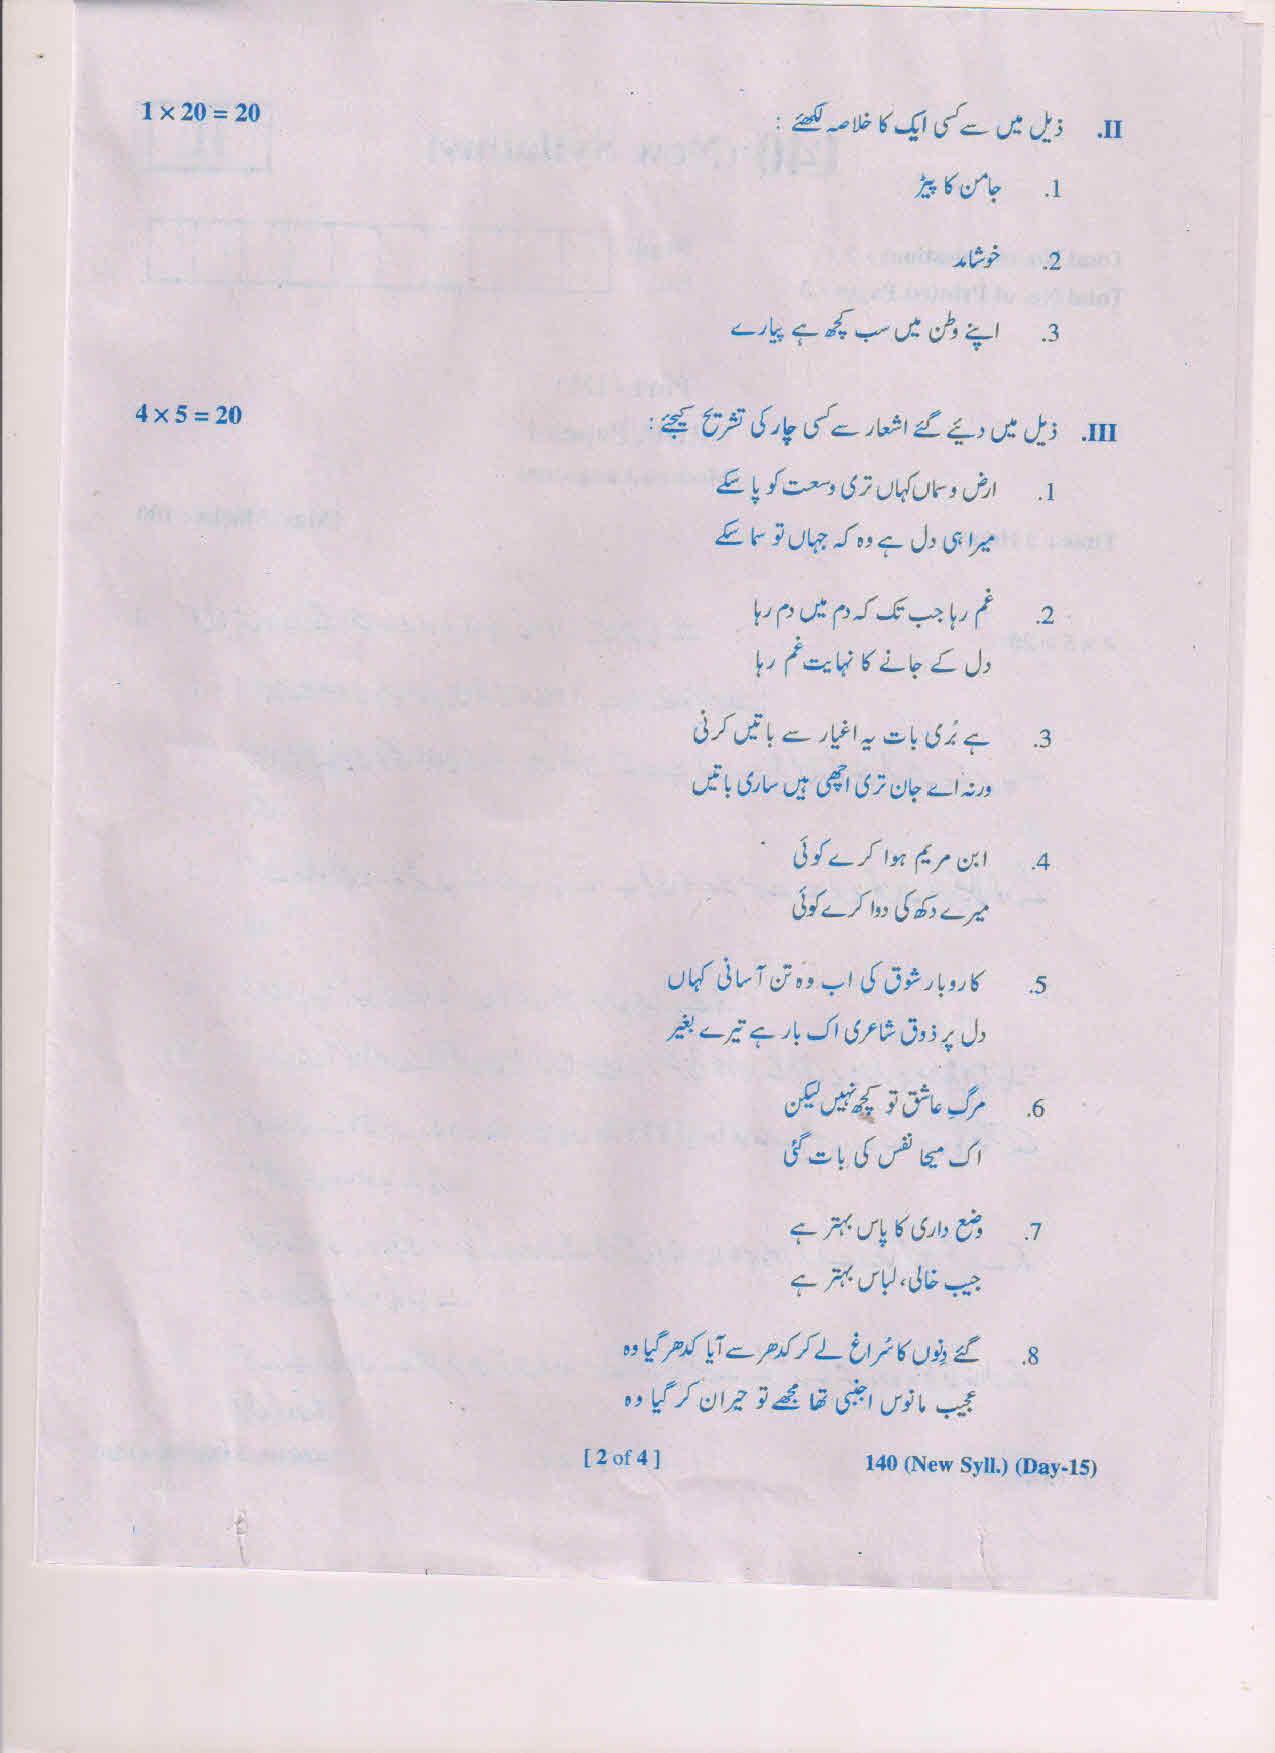 II. ذیل میں سے کسی ایک کا خلاصہ لکھئے : 1 × 20 = 20
1. جامن کا پیڑ
2. خوشامد
3. اپنے وطن میں سب کچھ ہے پیارے
III. ذیل میں دیئے گئے اشعار سے کسی چار کی تشریح کیجئے : 4 × 5 = 20
1. ارض و سماں کہاں تری وسعت کو پا سکے
میرا ہی دل ہے وہ کہ جہاں تو سما سکے
2. غم رہا جب تک کہ دم میں دم رہا
دل کے جانے کا نہایت غم رہا
3. ہے بُری بات یہ اغیار سے باتیں کرنی
ورنہ اے جان تری اچھی ہیں ساری باتیں
4. ابن مریم ہوا کرے کوئی
میرے دکھ کی دوا کرے کوئی
5. کاروبار شوق کی اب وہ تن آسانی کہاں
دل پر ذوق شاعری اک بار ہے تیرے بغیر
6. مرگِ عاشق تو کچھ نہیں لیکن
اک مسیحا نفس کی بات گئی
7. وضع داری کا پاس بہتر ہے
جیب خالی، لباس بہتر ہے
8. گئے دِنوں کا سُراغ لے کر کدھر سے آیا کدھر گیا وہ
عجیب مانوس اجنبی تھا مجھے تو حیران کر گیا وہ
140 (New Syll.) (Day-15) [ 2 of 4 ]